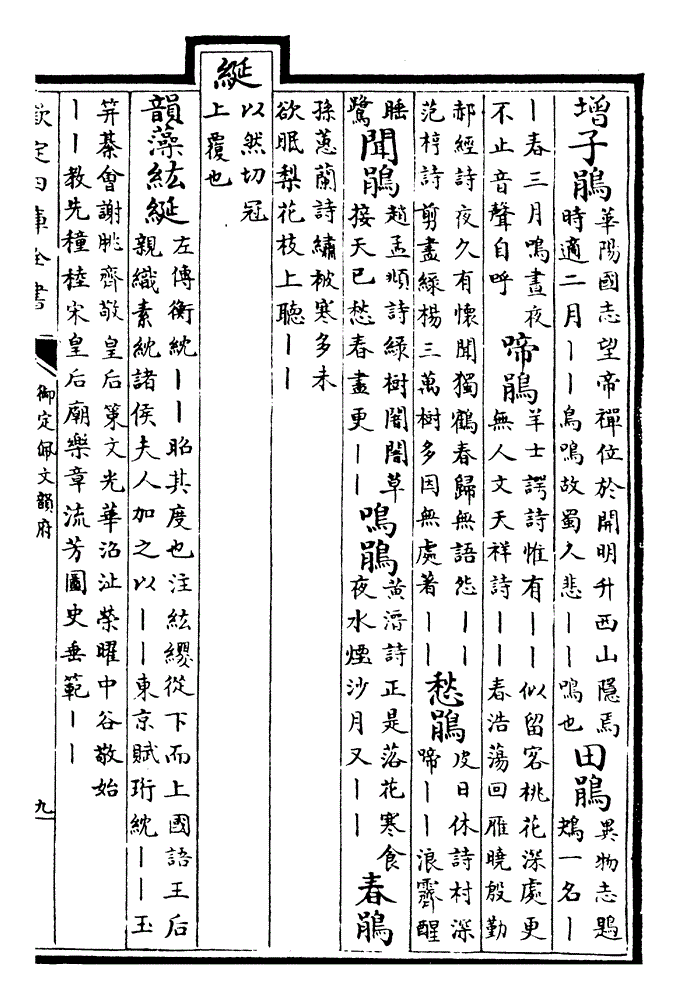 增子鵑
華陽國志望帝禪位於開明升西山隱焉
時適二月丨丨鳥鳴故蜀人悲丨丨鳴也
田鵑
異物志鶗
鴂一名丨
丨春三月鳴晝夜
不止音聲自呼
啼鵑
羊士諤詩惟有丨丨似留客桃花深處更
無人文天祥詩丨丨春浩蕩回雁曉殷勤
郝經詩夜久有懷聞獨鶴春歸無語怨丨丨
范梈詩剪盡綠楊三萬樹多因無處著丨丨
愁鵑
皮日休詩村深
啼丨丨浪霽醒
睡
鷺
聞鵑
趙孟頫詩綠樹闇闇草
接天已愁春盡更丨丨
鳴鵑
黃溍詩正是落花寒食
夜水煙沙月又丨丨
春鵑
孫蕙蘭詩繡被寒多未
欲眠梨花枝上聽丨丨
綖
以然切冠
上覆也
韻藻紘綖
左傳衡紞丨丨昭其度也注紘纓從下而上國語王后
親織素紞諸侯夫人加之以丨丨東京賦珩紞丨丨玉
笄綦會謝朓齊敬皇后策文光華沿沚榮曜中谷敬始
丨丨教先穜稑宋皇后廟樂章流芳圖史垂範丨丨
欽定四庫全書
御定佩文韻府
九